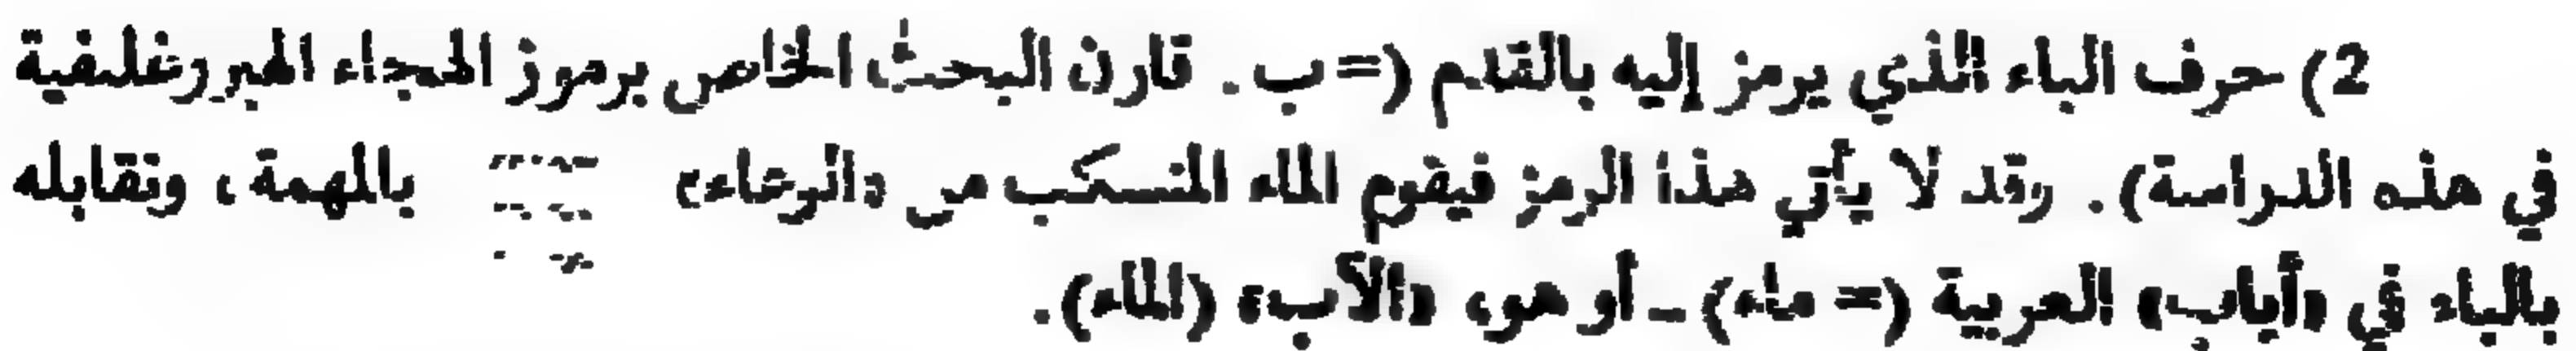 2) حرف الباء الذي يرمز إليه بالقدم (= ب . قارن البحث الخاص برموز الهجاء الهيروغليفية
في هذه الدراسة) . وقد لا يأتي هذا الرمز فيقوم الماء المنسكب من «الوعاء» بالمهمة ، ونقابله
بالباء في «أباب» العربية (= ماء) ـ أو هو، «الآب» (الماء) .